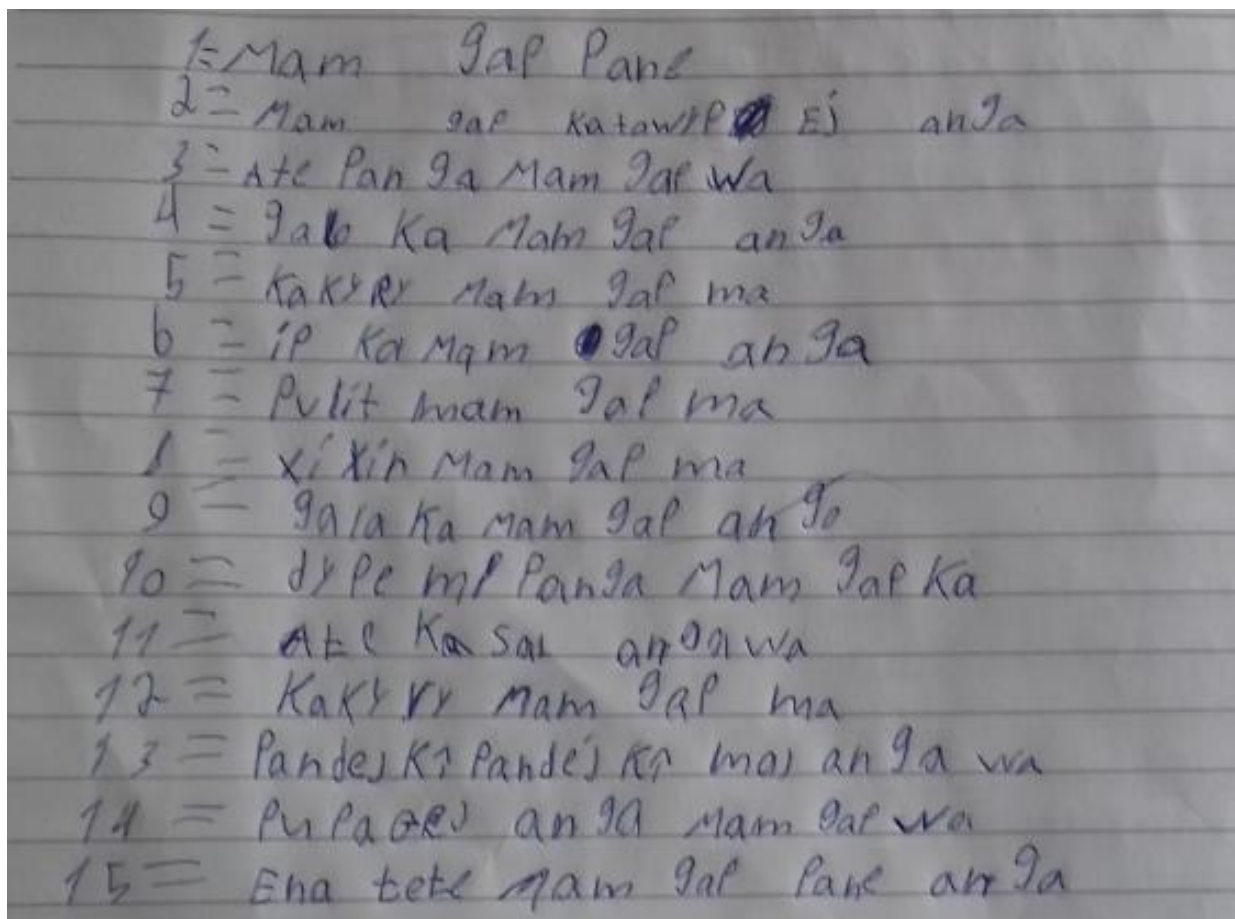 1= Mam gap Pane
2= Mam gap Katawyp Ej anga
3= Ate Pan ga Mam gap wa
4= gab Ka Mam gap anga
5= KaKyRy Mam gap ma
6= ip Ka Mam gap an ga
7= Pulit mam gap ma
8= Xi Xin Mam gap ma
9= gala Ka Mam gap an go
10= dype mp Panga Mam gap Ka
11= Ate Ka Sal anga wa
12= KaKy ry Mam gap ma
13= Pandej Ki Pandej Ki maj an ga wa
14= Pupagej an ga Mam gap wa
15= Ena tete Mam gap Pane an ga